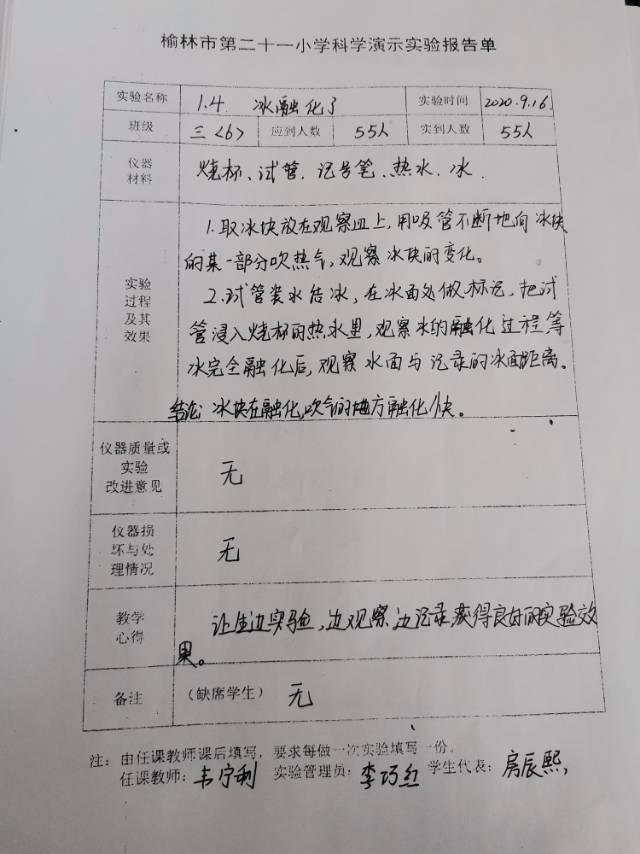 榆林市第二十一小学科学演示实验报告单
实验名称 1.4. 冰融化了 实验时间 2020.9.16.
班级 三<6> 应到人数 55人 实到人数 55人
仪器
材料
烧杯、试管、记号笔、热水、冰.
实验
过程
及其
效果
1.取冰块放在观察皿上,用吸管不断地向冰块
的某一部分吹热气,观察冰块的变化。
2.试管装水结冰,在冰面处做标记,把试
管浸入烧杯的热水里,观察冰的融化过程,等
冰完全融化后,观察水面与记录的冰面距离。
结论 冰块在融化,吹气的地方融化快。
仪器质量或
实验
改进意见
无
仪器损
坏与处
理情况
无
教学
心得
让生边实验,边观察,边记录,获得良好的实验效
果。
备注 (缺席学生) 无
注:由任课教师课后填写,要求每做一次实验填写一份。
任课教师: 实验管理员:李巧红 学生代表:房辰熙,